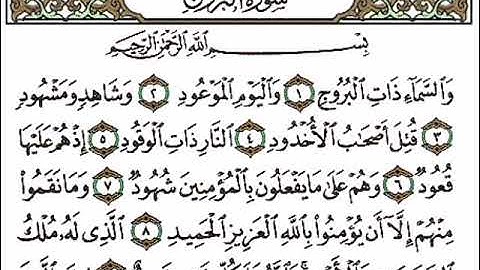 سورة البروج
بِسْمِ اللَّهِ الرَّحْمَٰنِ الرَّحِيمِ
وَالسَّمَاءِ ذَاتِ الْبُرُوجِ ١ وَالْيَوْمِ الْمَوْعُودِ ٢ وَشَاهِدٍ وَمَشْهُودٍ
٣ قُتِلَ أَصْحَابُ الْأُخْدُودِ ٤ النَّارِ ذَاتِ الْوَقُودِ ٥ إِذْ هُمْ عَلَيْهَا
قُعُودٌ ٦ وَهُمْ عَلَىٰ مَا يَفْعَلُونَ بِالْمُؤْمِنِينَ شُهُودٌ ٧ وَمَا نَقَمُوا
مِنْهُمْ إِلَّا أَن يُؤْمِنُوا بِاللَّهِ الْعَزِيزِ الْحَمِيدِ ٨ الَّذِي لَهُ مُلْكُ